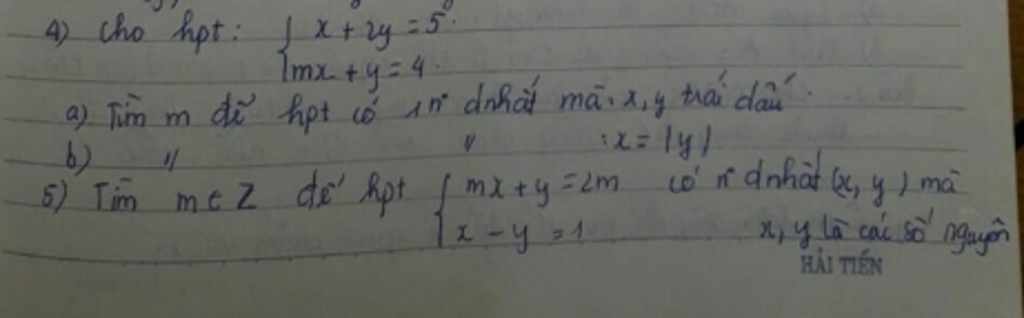 4) Cho hpt: { x + 2y = 5.
mx + y = 4.
a) Tìm m để hpt có 1 n° dnhất mà x, y trái dấu.
b) " " : x = |y|
5) Tìm m ∈ Z để hpt { mx + y = 2m có n° dnhất (x, y) mà
x - y = 1 x, y là các số nguyên
HẢI TIẾN